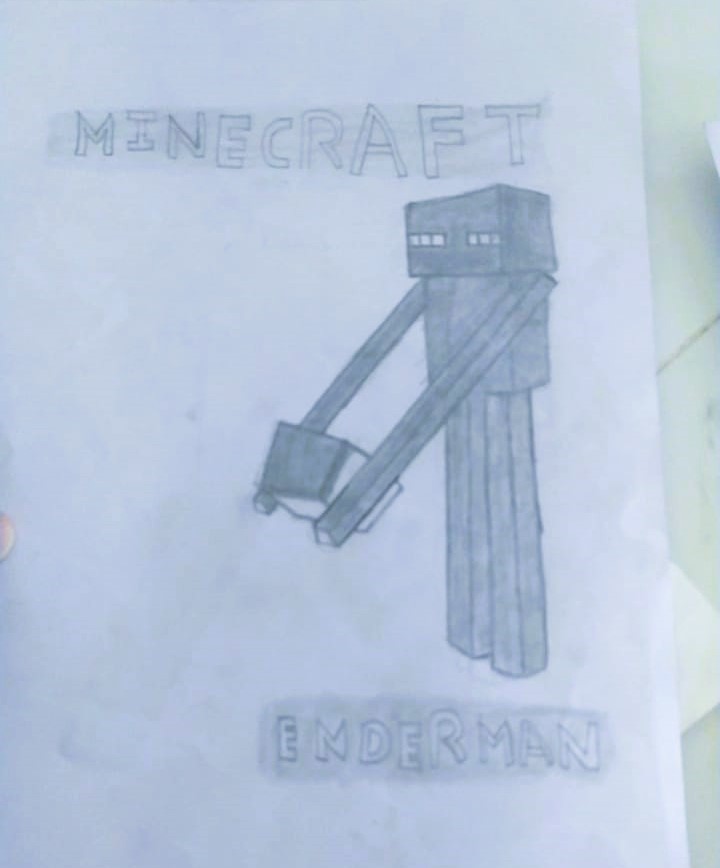 MINECRAFT
ENDERMAN